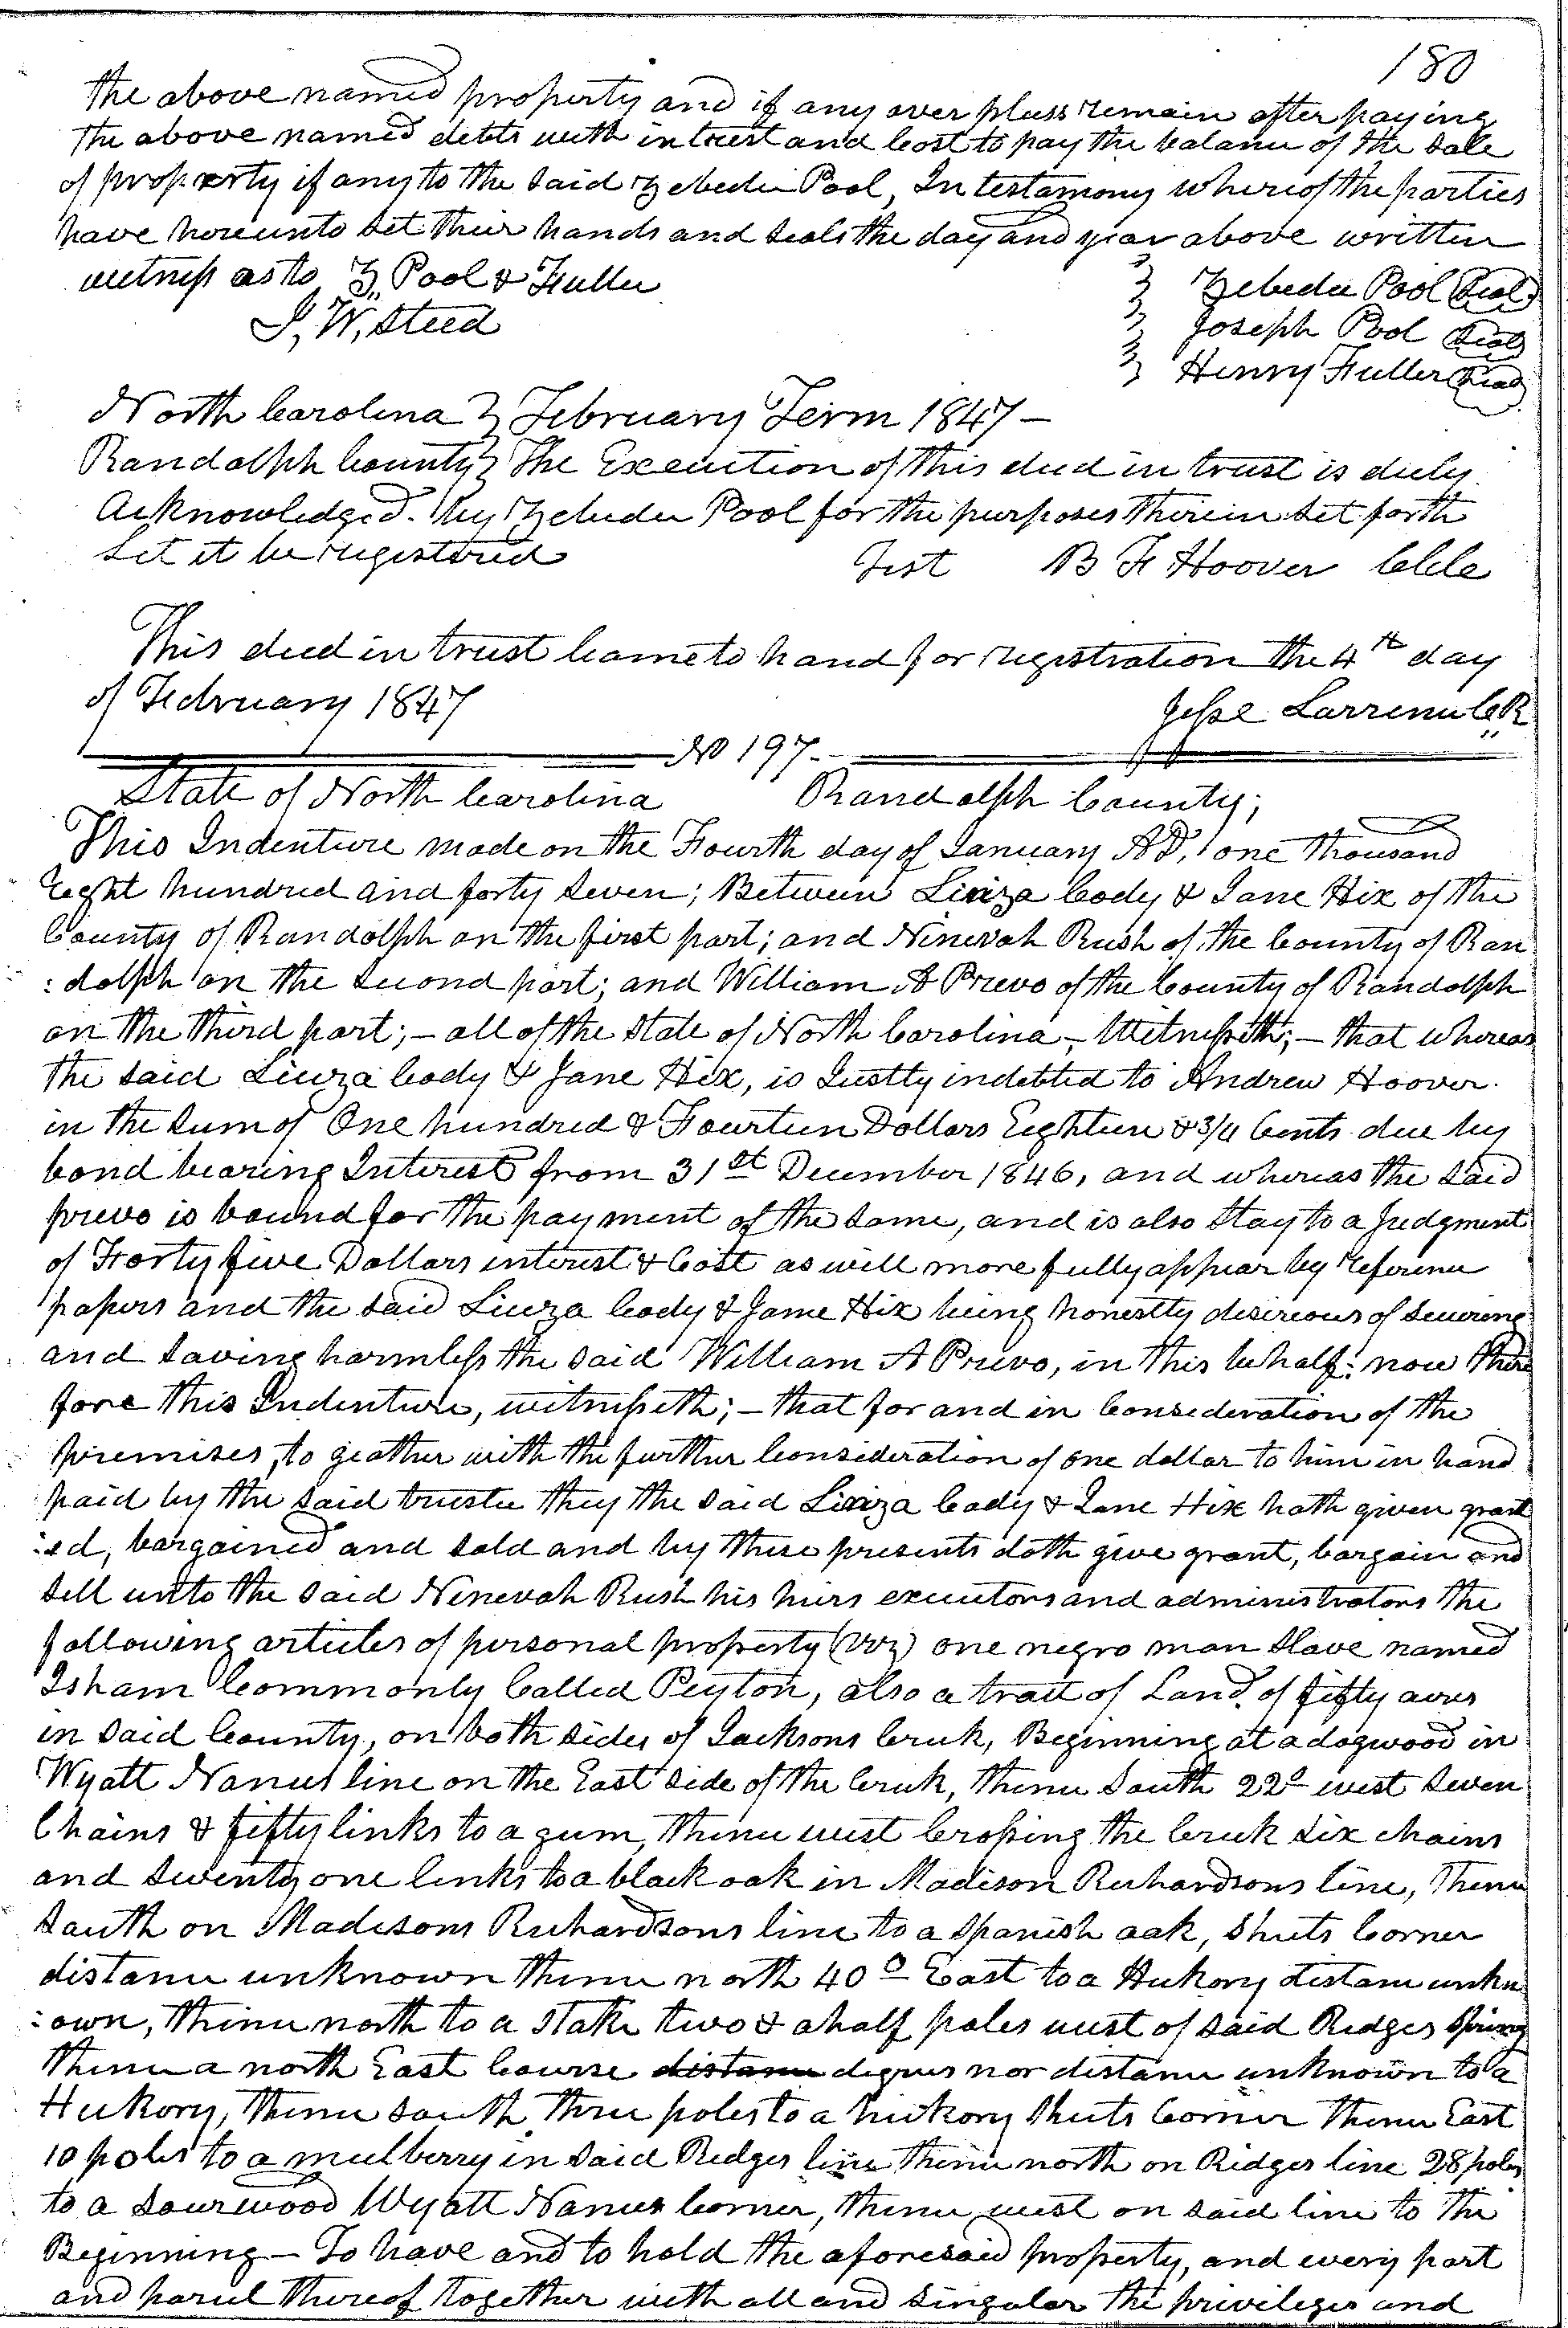 180
the above named property and if any over pluss remain after paying
the above named debts with intrest and Cost to pay the balance of the sale
of property if any to the said Zebedee Pool, In testamony whereof the parties
have hereunto set their hands and seals the day and year above written
witness as to Z, Pool & Fuller } Zebedee Pool (Seal)
J, W, Steed } Joseph Pool (Seal)
} Henry Fuller (Seal)
North Carolina } February Term 1847 –
Randolph County } The Execution of this deed in trust is duly
Acknowledged. by Zebedee Pool for the purposes therein set forth
Let it be registered Test B F Hoover Clk
This deed in trust Came to hand for registration the 4th day
of February 1847 Jesse Larrence C,R
No 197.
State of North Carolina Randolph County;
This Indenture made on the Fourth day of January AD, one thousand
Eight hundred and forty seven; Between Cody & Jane Hix of the
County of Randolph on the first part; and Ninevah Rush of the County of Ran
:dolph on the second part; and William A Prevo of the County of Randolph
on the third part; – all of the state of North Carolina – Witnesseth; – that whereas
the said Cody & Jane Hix, is Justly indebted to Andrew Hoover.
in the sum of One hundred & Fourteen Dollars Eighteen & 3/4 Cents due by
bond bearing Interest from 31st December 1846, and whereas the said
prevo is bound for the payment of the same, and is also Stay to a Judgment
of Forty five Dollars interest & Cost as will more fully appear by reference
papers and the said Cody & Jane Hix being honestly desireous of securing
and saving harmless the said William A Prevo, in this behalf: now there
fore this Indenture, witnesseth; – that for and in Consideration of the
premises, to geather with the further Consideration of one dollar to him in hand
paid by the said trustee they the said Cody & Jane Hix hath given grant
:ed, bargained and sold and by these presents doth give grant, bargain and
sell unto the said Ninevah Rush his heirs executors and administrators the
following articles of personal property (viz) one negro man slave named
Isham Commonly Called Peyton, also a tract of Land, of fifty acres
in said County, on both sides of Jacksons Creek, Beginning at a dogwood in
Wyatt Nances line on the East side of the Creek, thence South 22° west seven
Chains & fifty links to a gum, thence west Crossing the Creek six chains
and seventy one links to a black oak in Madison Richardsons line, thence
South on Madisons Richardsons line to a Spanish oak, Shuts Corner
distance unknown thence north 40° East to a Hickory distance unkn
:own, thence north to a stake two & a half poles west of said Ridges Spring
thence a north East Course distance degrees nor distance unknown to a
Hickory, thence south three poles to a hickory Shuts Corner thence East
10 poles to a mulberry in said Ridges line thence north on Ridges line 28 poles
to a sourwood Wyatt Nances Corner, thence west on said line to the
Beginning – To have and to hold the aforesaid property, and every part
and parcel thereof together with all and singular the privileges and